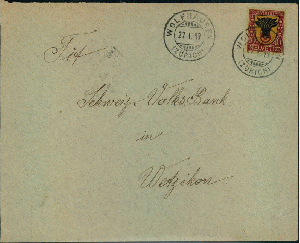 WOLFHAUSEN
27.I.19
(ZÜRICH)
HELVETIA
Tit.
Schweiz. Volksbank
in
Wetzikon